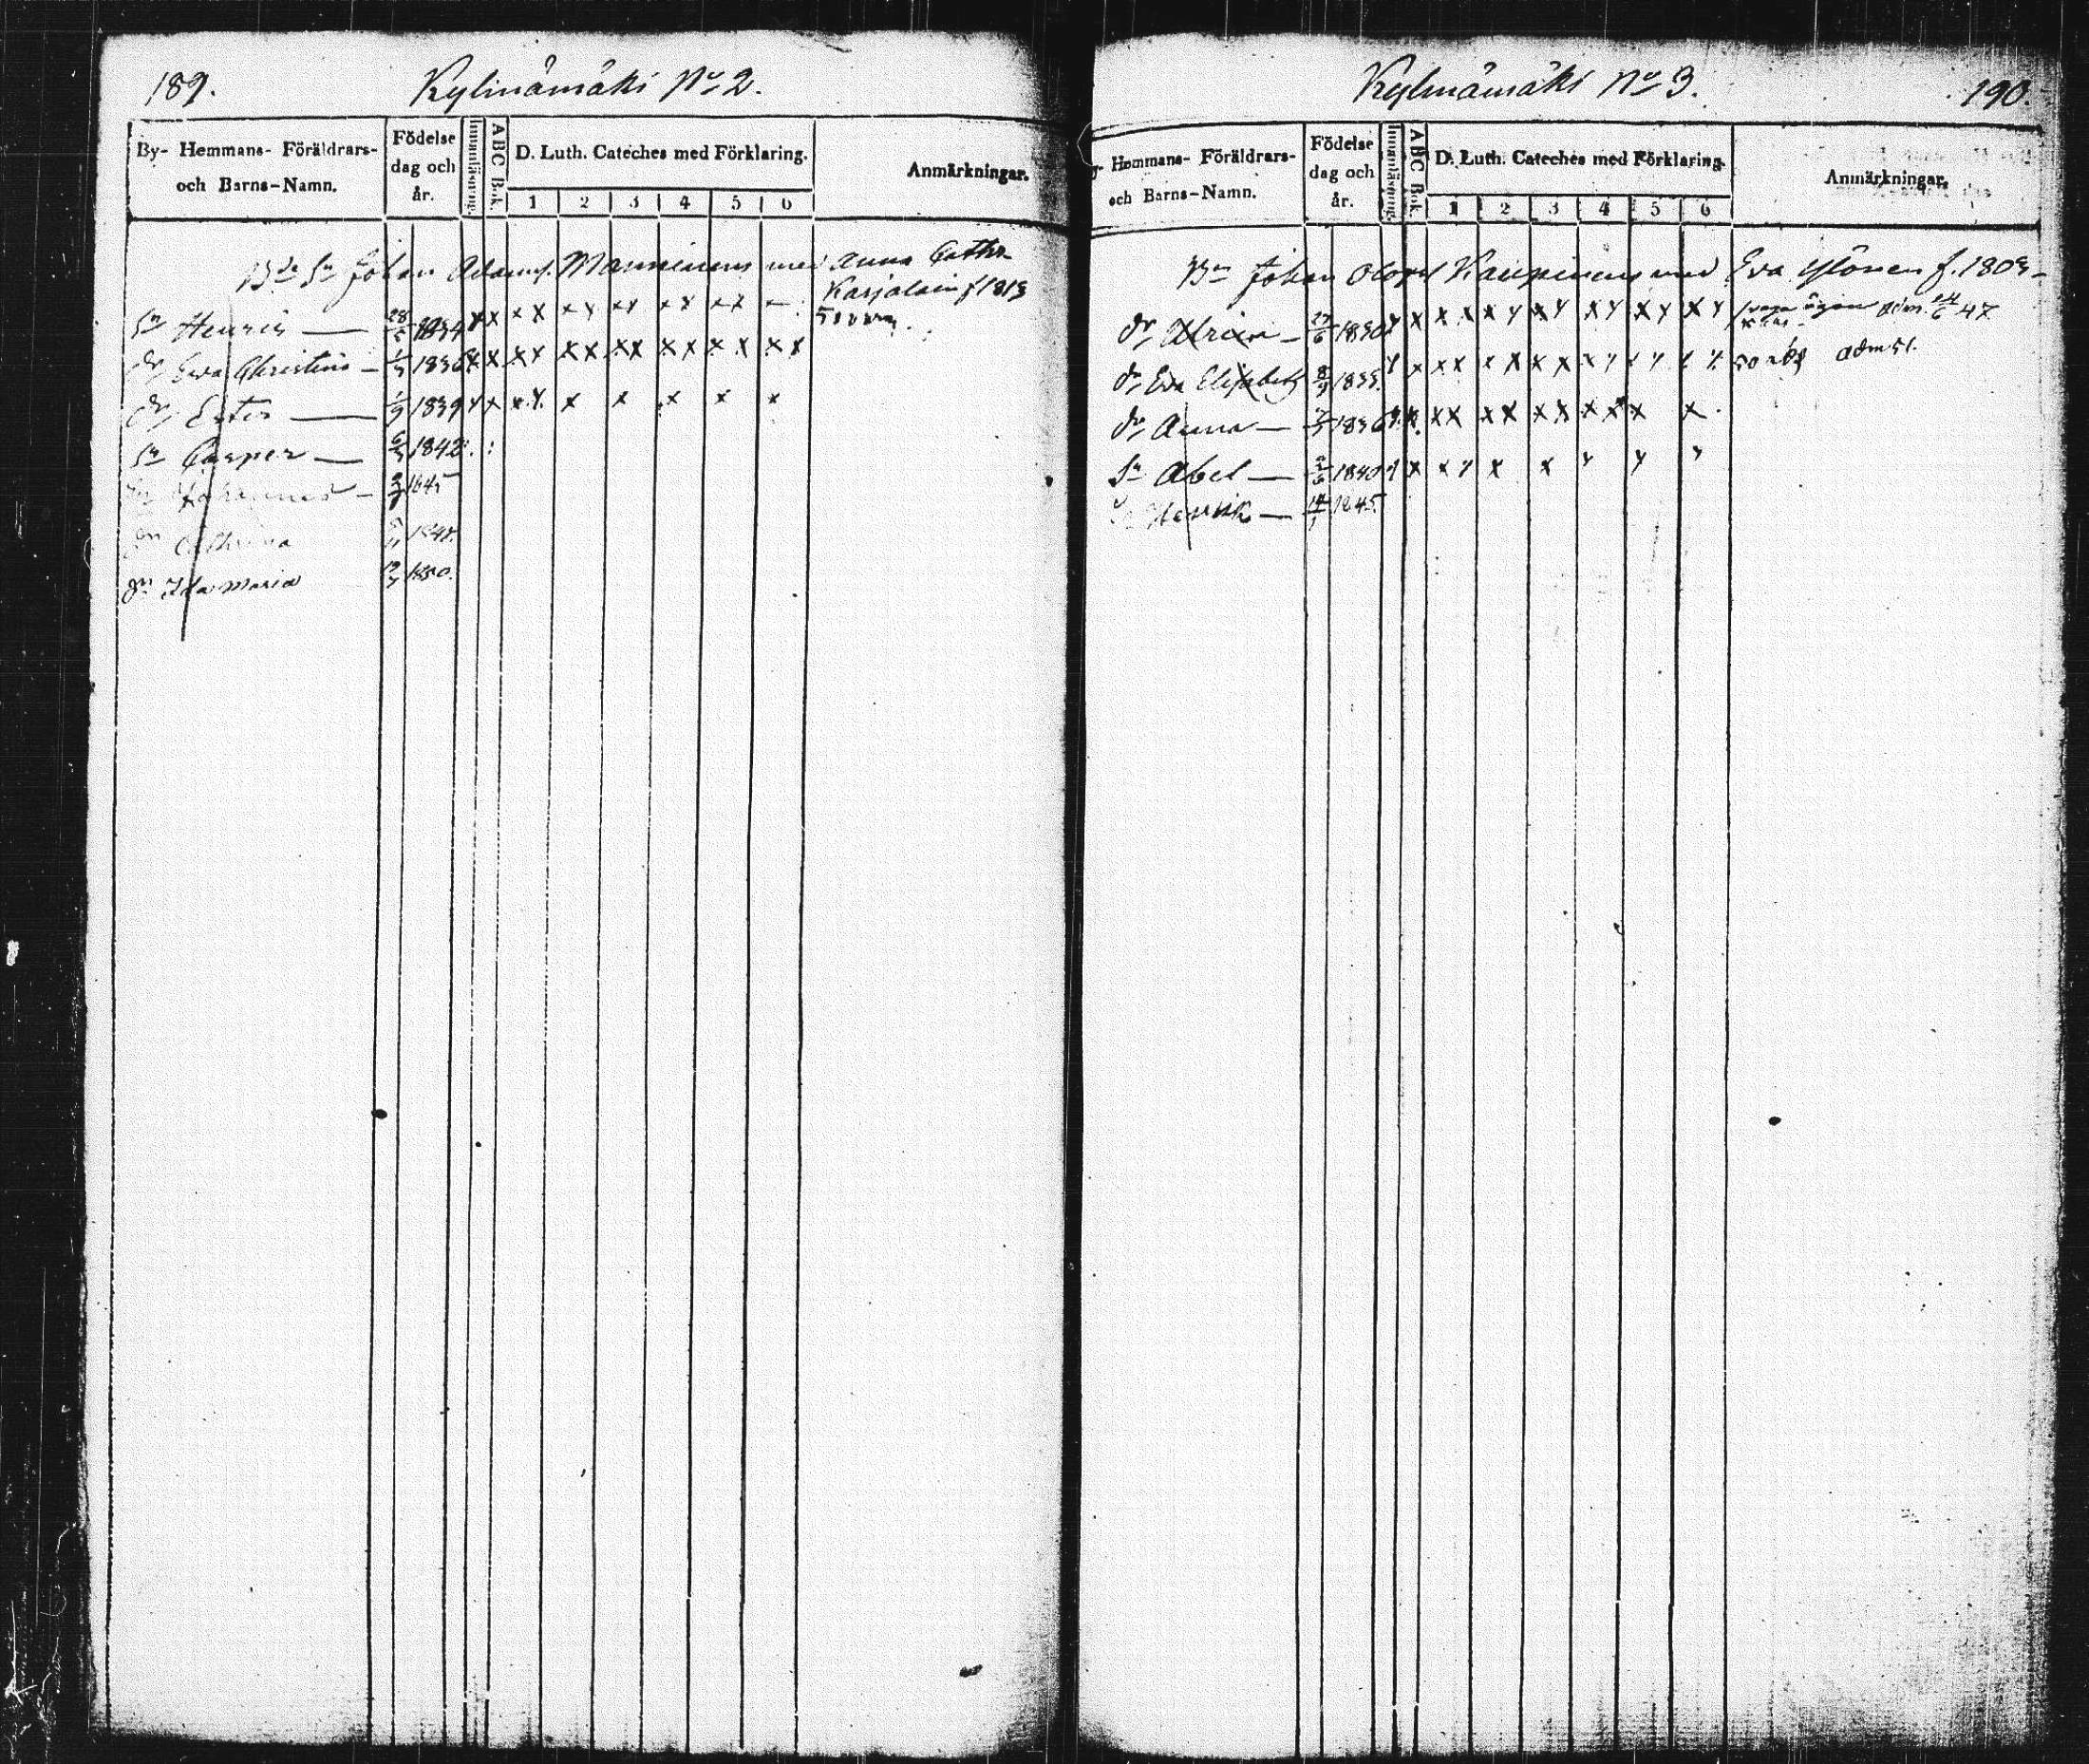 189. Kylmämäki No 2.
By- Hemmans- Föräldrars- och Barns-Namn.
Födelse dag och år.
Innanläsning.
ABC Bok.
D. Luth. Cateches med Förklaring.
1 2 3 4 5 6
Anmärkningar.
Bde Sn Johan Adamss. Manninens med Anna Cathr.
Karjalain f 1813
Sn Henric — 28/5 1834 x x x x x x x x x x x x —
dr Eva Christina — 1836 x x x x x x x x x x x x x x
dr Ester — 1839 x x x x x x x x x
Sn Casper — 6/3 1842
Johannes — 1845
dr Cathrina 1848.
dr Ida Maria 1850.
Kylmämäki No 3. 190.
Hemmans- Föräldrars- och Barns-Namn.
Födelse dag och år.
Innanläsning.
ABC Bok.
D. Luth. Cateches med Förklaring.
1 2 3 4 5 6
Anmärkningar.
Bn Johan Olofss Kaupinens med Eva Ylönen f. 1803
dr — 27/6 1830 x x x x x x x x x x x x x x adm. 24/6 47
dr Eva Elisabeth 8/9 1833 x x x x x x x x x x x x x x adm 51.
dr Anna — 1836 x x x x x x x x x x x x
Sn Abel — 1840 x x x x x x x x x
Henrik — 14/1 1845.